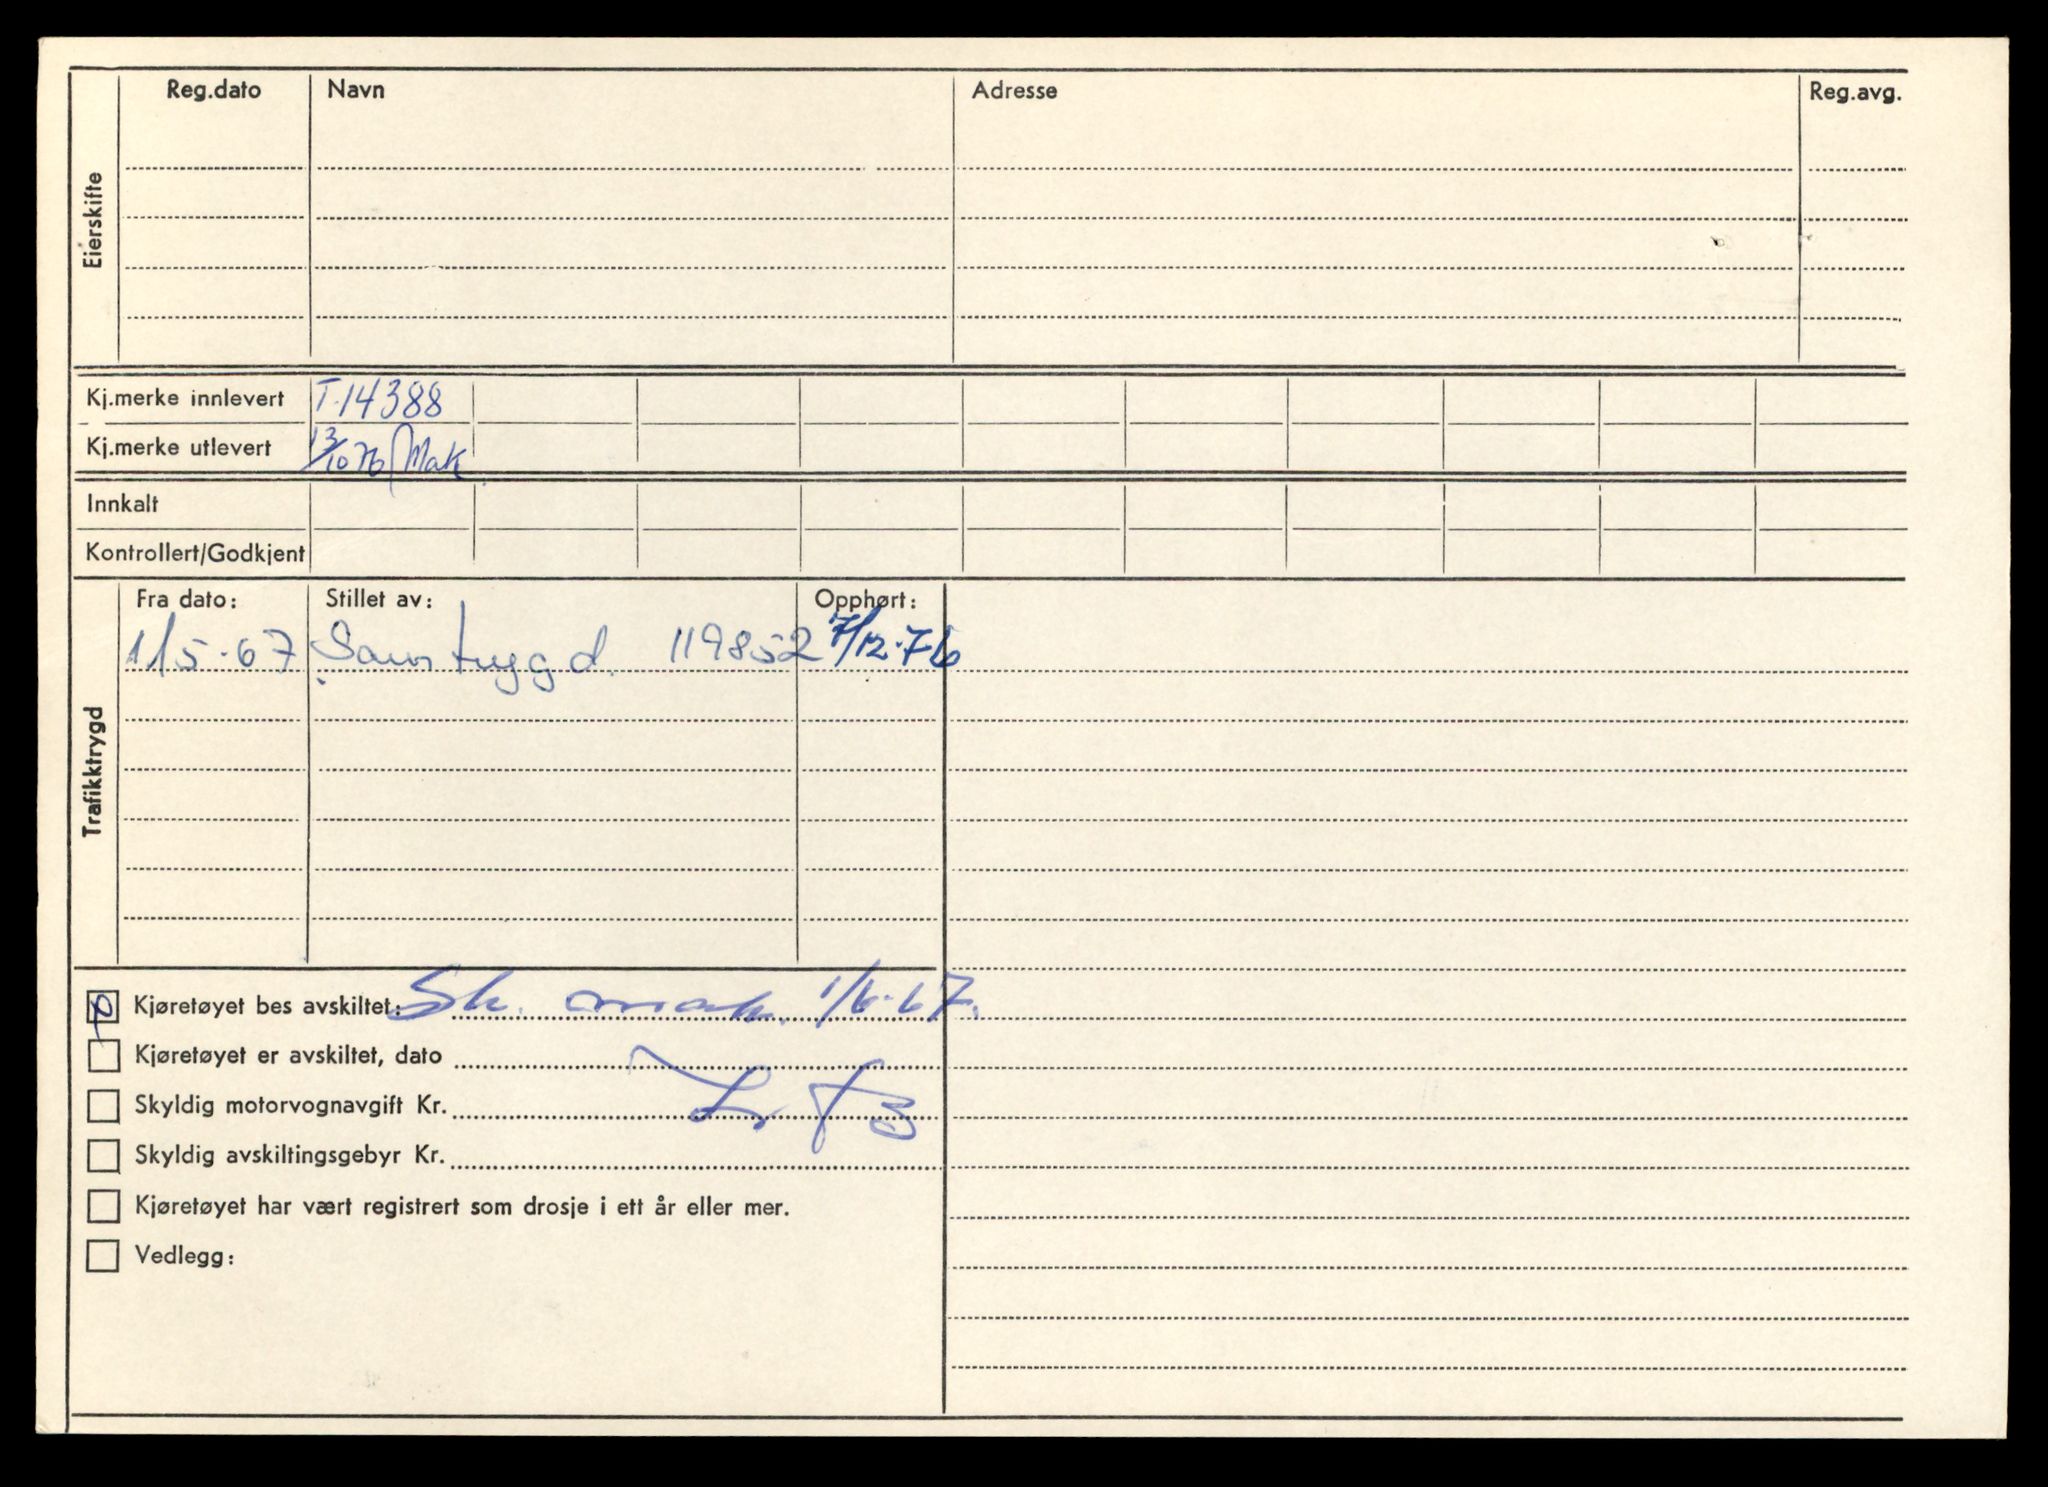 Reg.dato Navn Adresse Reg.avg.
Eierskifte
Kj.merke innlevert T-14388
Kj.merke utlevert 13/10 76 Mak
Innkalt
Kontrollert/Godkjent
Trafikktrygd
Fra dato: Stillet av: Opphørt:
1/5-67 Samtrygd 119852 7/12-76
Kjøretøyet bes avskiltet: 1/6-67.
Kjøretøyet er avskiltet, dato
Skyldig motorvognavgift Kr.
Skyldig avskiltingsgebyr Kr.
Kjøretøyet har vært registrert som drosje i ett år eller mer.
Vedlegg: